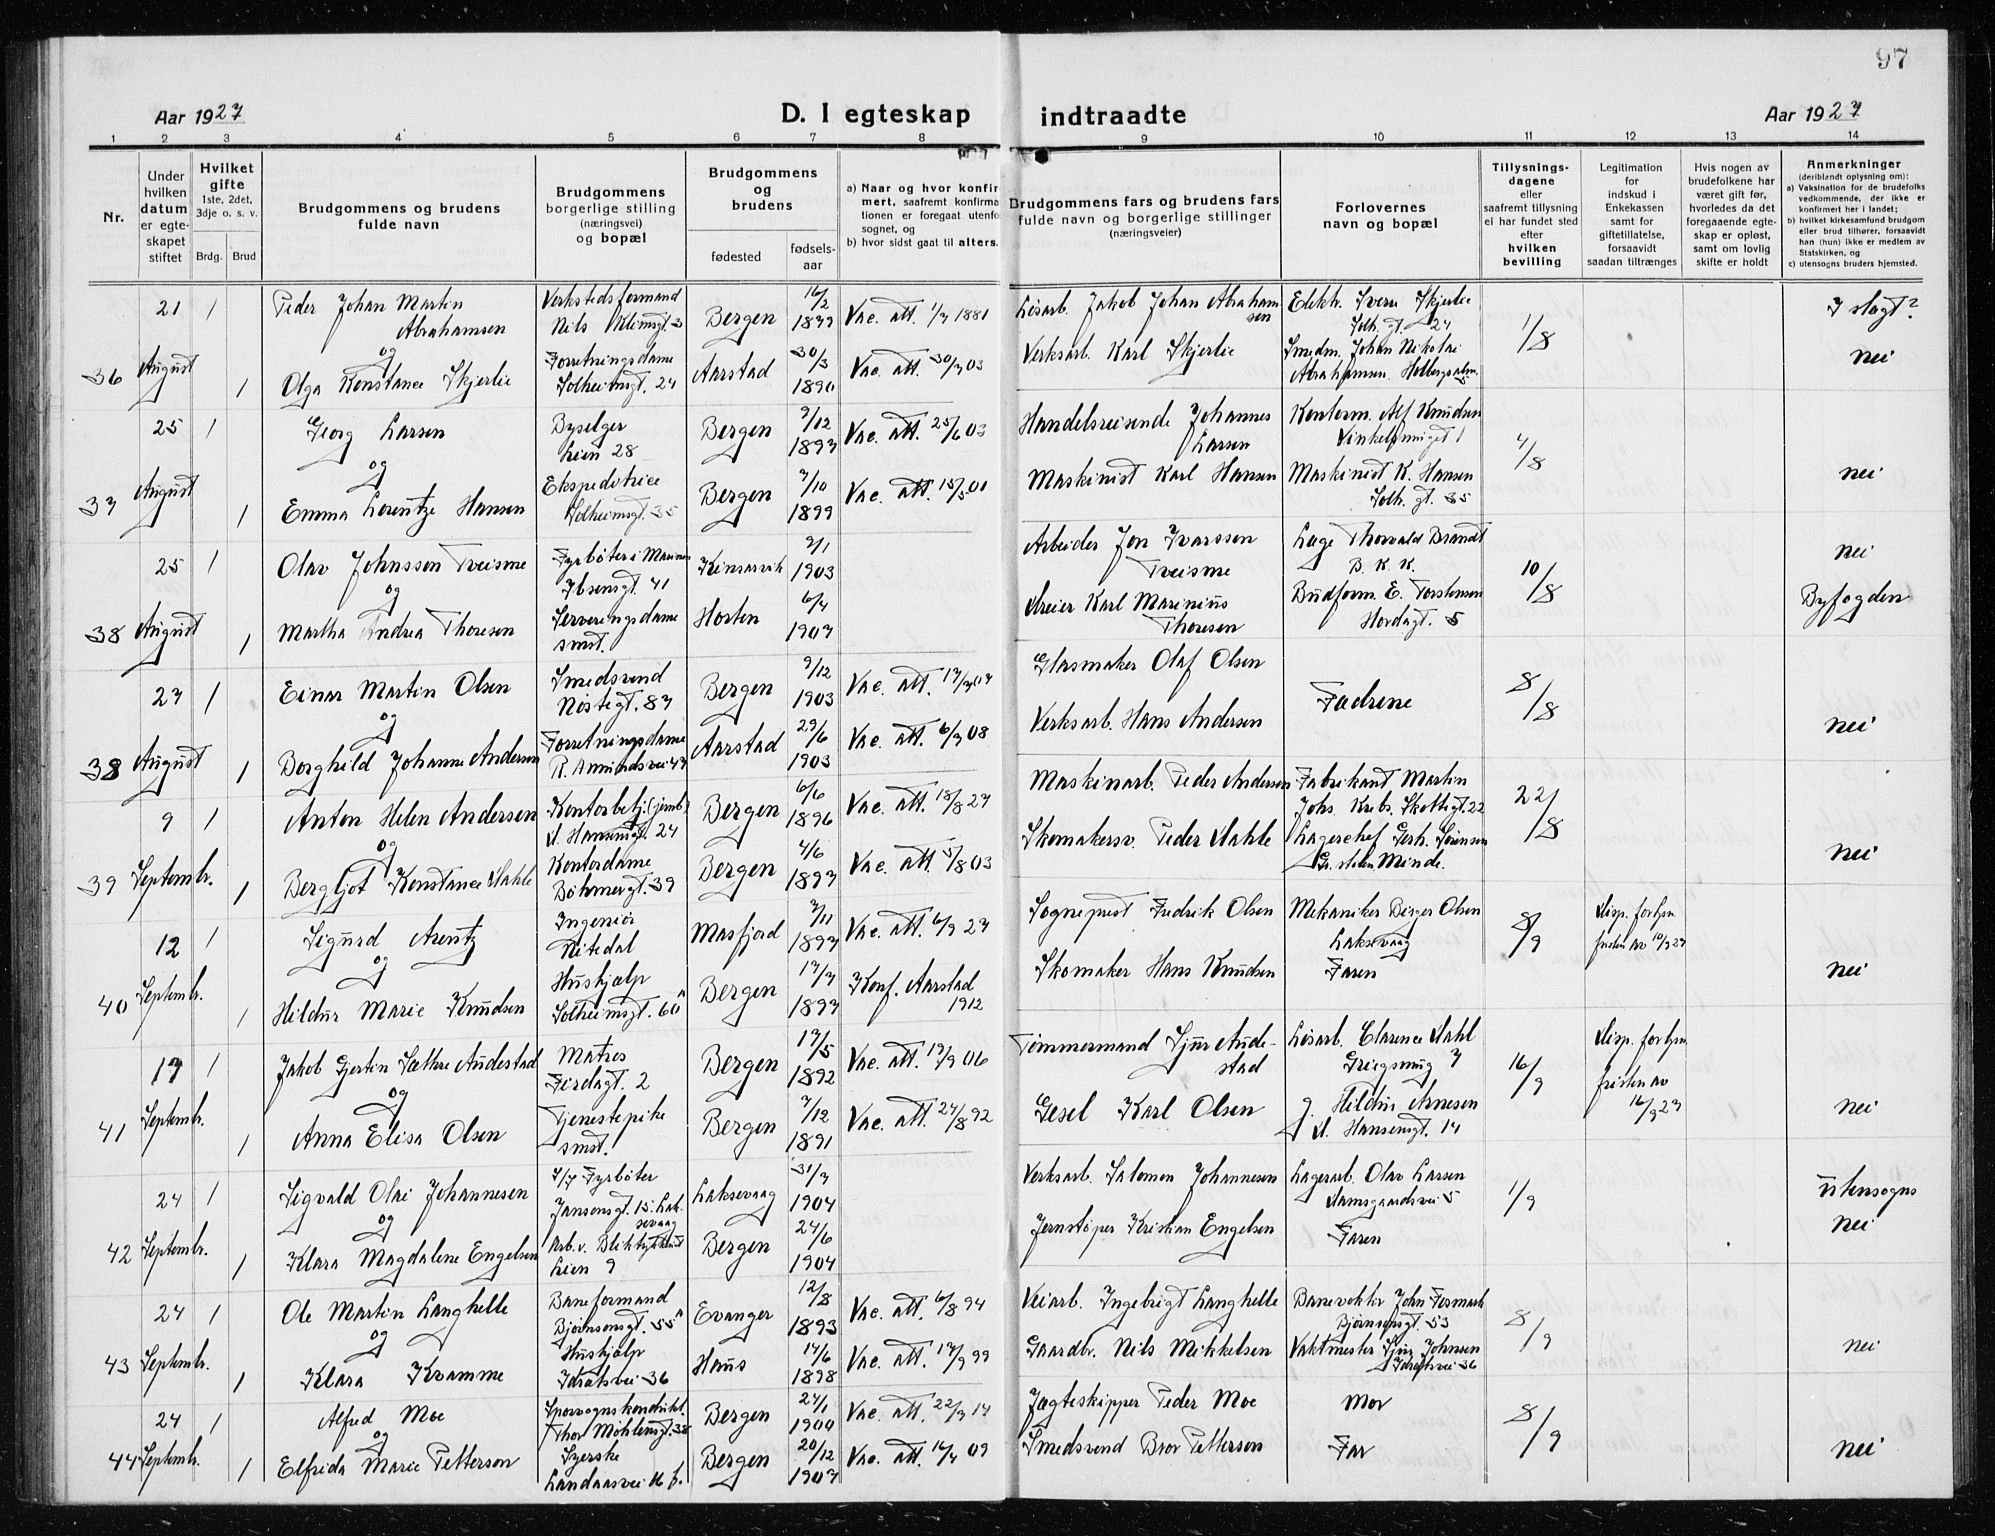 97
Aar 1927
D. I egteskap
indtraadte
Aar 1927
1 2 3 4 5 6 7 8 9 10 11 12 13 14
Nr.
Under
hvilken
datum
er egte-
skapet
stiftet
Hvilket
gifte
1ste, 2det,
3dje o. s. v.
Brdg. Brud
Brudgommens og brudens
fulde navn
Brudgommens
borgerlige stilling
(næringsvei)
og bopæl
Brudgommens
og
brudens
fødested
fødsels-
aar
a) Naar og hvor konfir-
mert, saafremt konfirma
tionen er foregaat utenfo
sognet, og
b) hvor sidst gaat til alters.
Brudgommens fars og brudens fars
fulde navn og borgerlige stillinger
(næringsveier)
Forlovernes
navn og bopæl
Tillysnings-
dagene
eller
saafremt tillysning
ei har fundet sted
efter
hvilken
bevilling
Legitimation
for
indskud i
Enkekassen
samt for
giftetillatelse,
forsaavidt
saadan tiltrænges
Hvis nogen av
brudefolkene har
været gift før,
hvorledes da det
foregaaende egte-
skap er opløst,
samt om lovlig
skifte er holdt
Anmerkninger
(deriblandt oplysning om):
a) Vaksination for de brudefolks
vedkommende, der ikke er
konfirmert her i landet;
b) hvilket kirkesamfund brudgom
eller brud tilhører, forsaavidt
han (hun) ikke er medlem av
Statskirken, og
c) utensogns bruders hjemsted.
36
21 August
1
1
Peder Johan Martin
Abrahamsen
og
Olga Konstance Skjerlie
Verkstedsformand
Nils Klimsgt. 3
Forretningsdame
Solheimsgt. 24
Bergen 16/2
Aarstad 30/3
1890
Vac. att. 1/7 1881
Vac. att. 30/7 03
Løsarb. Jakob Johan Abraham
sen
Verksarb. Karl Skjerlie
Elektr. Sverre Skjerlie
Solh.gt. 24
Smedm. Johan Nikolai
Abrahamsen
1/8
I slagt?
nei
37
25 August
1
1
Georg Larsen
og
Emma Lorentze Hansen
Byselger
Lien 28
Ekspeditrice
Solheimsgt. 35
Bergen 7/12
1897
Bergen 7/10
1899
Vac. att. 25/6 03
Vac. att. 15/5 01
Handelsreisende Johannes
Larsen
Maskinist Karl Hansen
Kontorm. Alf Knudsen
Vinkelsmuget 1
Maskinist K. Hansen
Solh.gt. 35
4/8
nei
38
25 August
1
1
Olav Johnsson Tveisme
og
Martha Andrea Thoresen
Fyrbøter i Marinen
Ibsensgt. 41
Serveringsdame
smst.
Kinsarvik 9/1
1903
Horten 6/4
1907
Arbeider Jon Ivarssen
Tveisme
Areier Karl Marinius
Thoresen
Lage Thorvald Brandt
B. K. K.
Budform. E. Torstensen
Hordagt. 5
10/8
nei
Byfogden
38
27 August
1
1
Einar Martin Olsen
og
Borghild Johanne Andersen
Smedsvend
Nøstegt. 87
Forretningsdame
R. Amundsvei 47
Bergen 9/12
1903
Aarstad 29/6
1903
Vac. att. 17/7 07
Vac. att. 6/7 08
Glasmaker Olaf Olsen
Verksarb. Hans Andersen
Fædrene
8/8
nei
39
9 Septembr.
1
1
Anton Helen Andersen
og
Bergljot Konstance Dahle
Kontorbetj. (jernb.)
D. Hansensgt. 24
Kontordame
Bøhmergt. 39
Bergen 6/6
1896
Bergen 4/6
1897
Vac. att. 18/8 27
Vac. att. 5/8 03
Maskinarb. Peder Andersen
Skomakersv. Peder Dahle
Fabrikant Martin
Johs. Krebs, Skottegt. 22
Lagerchef Gerh. Sørensen
Minde.
22/8
nei
40
12 Septembr.
1
1
Sigurd Arentz
og
Hildur Marie Knudsen
Ingeniør
Nitedal
Hushjælp
Solheimsgt. 60a
Masfjord 7/11
1897
Bergen 17/7
1897
Vac. att. 6/9 27
Konf. Aarstad
1912
Sogneprest Fredrik Olsen
Skomaker Hans Knudsen
Mekaniker Birger Olsen
Laksevaag
Faren
8/9
Disp. forlysn.
fristen av 10/9 27
nei
41
17 Septembr.
1
1
Jakob Gjertin Sæthre Audestad
og
Anna Elisa Olsen
Matros
Fjerdagt. 2
Tjenestepike
smst.
Bergen 17/5
1892
Bergen 7/12
1891
Vac. att. 17/9 06
Vac. att. 27/8 92
Tømmermand Sjur Aude-
stad
Gesel Karl Olsen
Løsarb. Clarence Dahl
Griegsmug 7
g. Hildur Arnesen
D. Hansensgt. 14
16/9
Disp. forlysn.
fristen av
16/9 27
nei
42
24 Septembr.
1
1
Sigvald Olai Johannesen
og
Klara Magdalene Engelsen
Fyrbøter
Jansensgt. 15, Lak-
sevaag
Lien 9
Laksevaag 31/7
1904
Bergen 24/6
1904
Verksarb. Salomon Johannesen
Jernstøper Kristian Engelsen
Lagerarb. Olav Larsen
Damsgaardsvei 5
Faren
1/9
Utensogns
nei
43
24 Septembr.
1
1
Ole Martin Langhelle
og
Klara Kvamme
Baneformand
Bjørnsonsgt. 55a
Hushjælp
Idrætsvei 36
Evanger 12/8
1893
Haus 14/6
1898
Vac. att. 6/8 94
Vac. att. 17/9 99
Veiarb. Ingebrigt Langhelle
Gaardbr. Nils Mikkelsen
Banevokter John Fosmark
Bjørnsensgt. 53
Vaktmester Sjur Johnsen
Idrætsvei 36
8/9
nei
44
24 Septembr.
1
1
Alfred Moe
og
Elfrida Marie Petterson
Sporvognskonduktør
Thor Møhlensgt. 38
Syerske
Landaasvei 16 b.
Bergen 27/1
1900
Bergen 20/12
1907
Vac. att. 22/7 14
Vac. att. 16/7 09
Jægteskipper Peder Moe
Smedsvend Bror Petterson
Mor
Far
8/9
nei